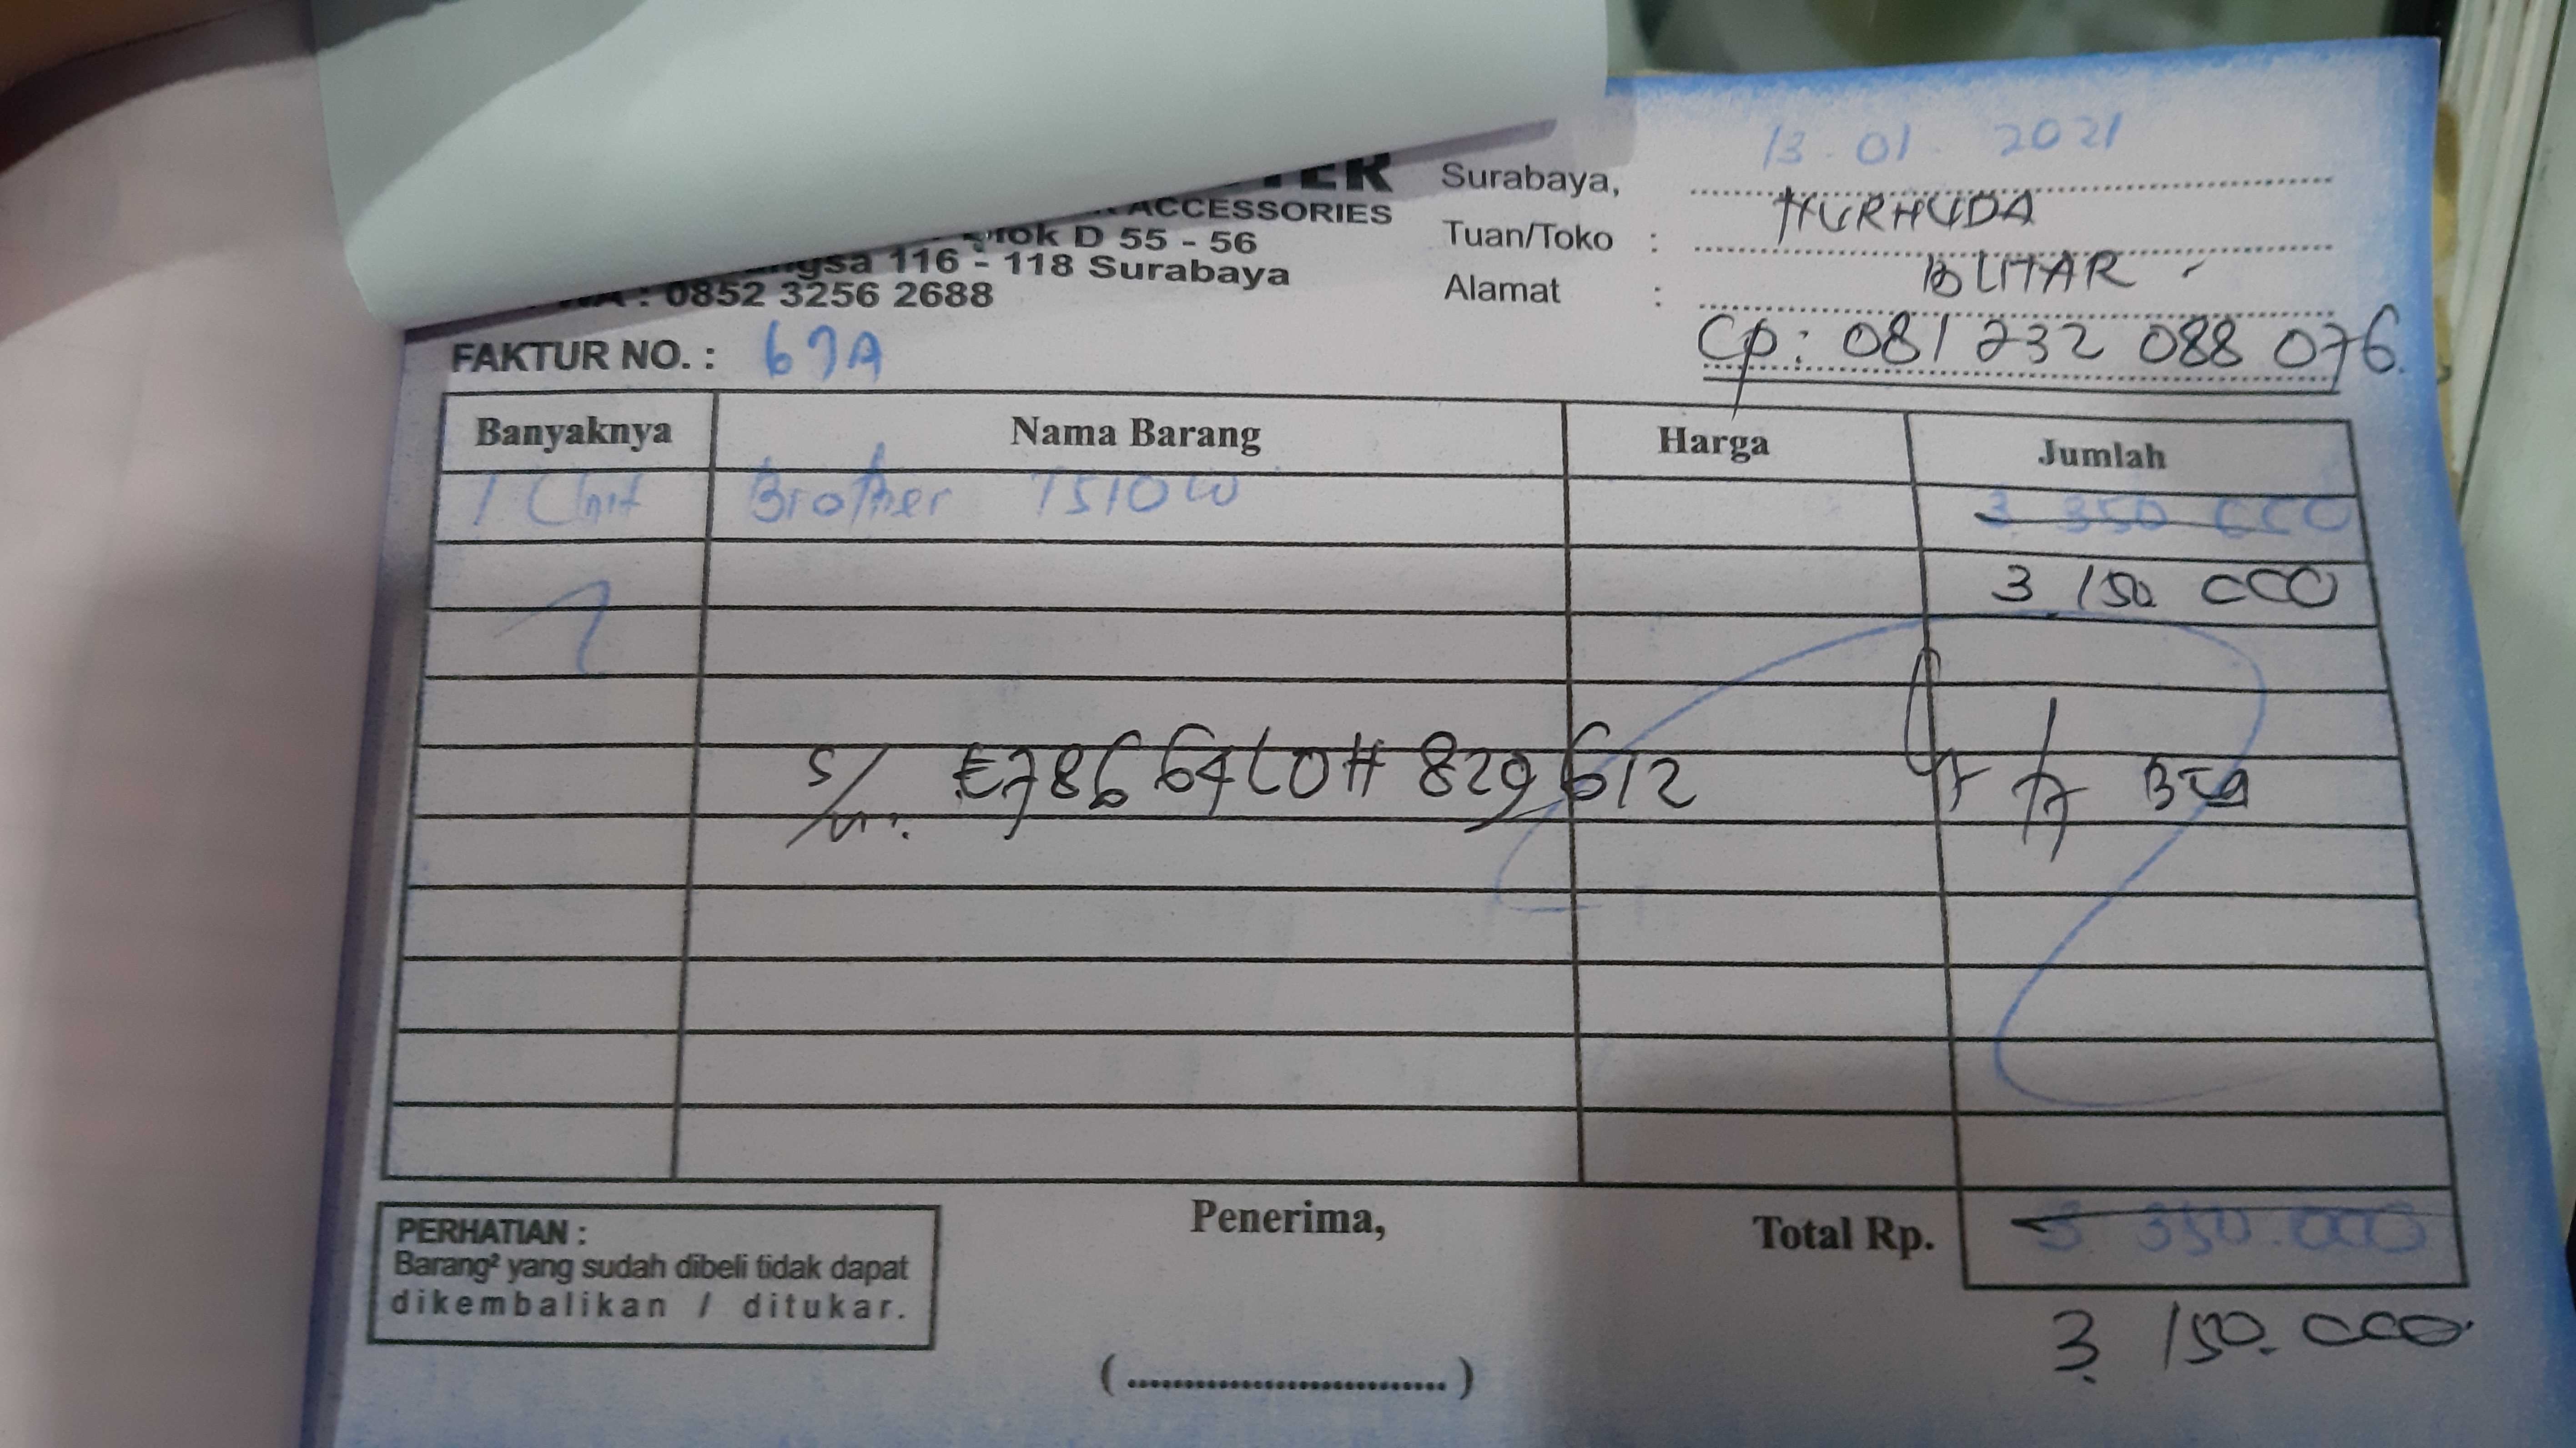 ACCESSORIES
D 55 - 56
116 - 118 Surabaya
: 0852 3256 2688
Surabaya, 13 - 01 - 2021
Tuan/Toko : NURHUDA
Alamat : BLITAR -
Cp: 081 232 088 076
FAKTUR NO. : 67A
Banyaknya Nama Barang Harga Jumlah
1 Unit Brother T510W 3 350 000
3.150 000
S/N: E78664L0H 829612
Total Rp. 3 350.000
3.150.000
PERHATIAN :
Barang² yang sudah dibeli tidak dapat
dikembalikan / ditukar.
Penerima,
(..............................)